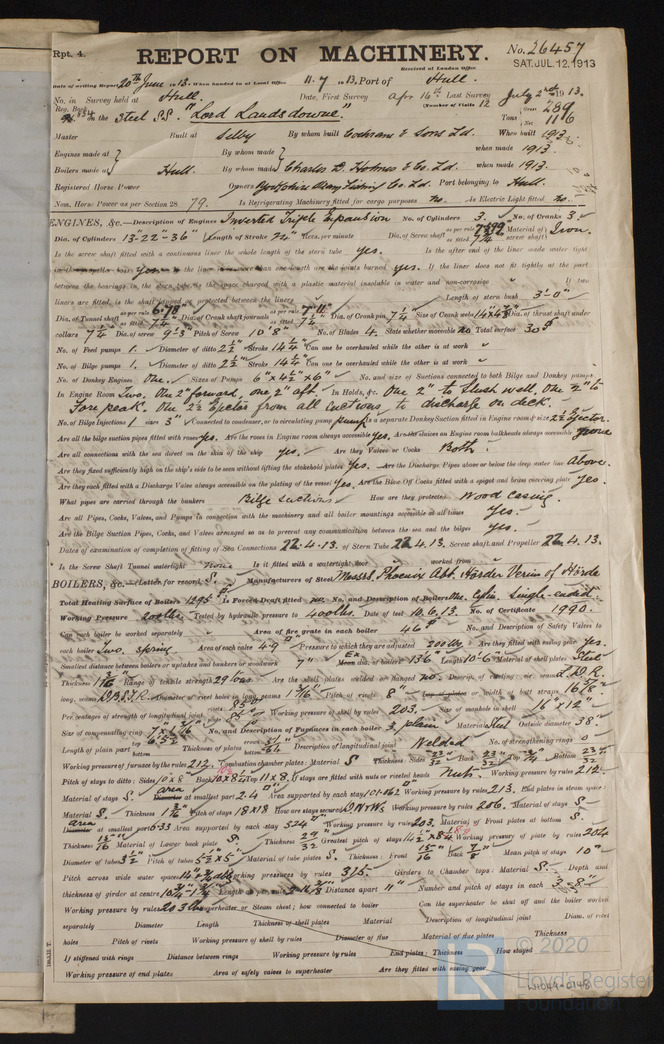 Rpt. 4. REPORT ON MACHINERY. No. 26457
Received at London Office SAT. JUL. 12. 1913
Date of writing Report 20th June 1913. When handed in at Local Office 11.7.13. Port of Hull.
No. in Survey held at Hull. Date, First Survey Apr 14th Last Survey July 2nd 1913.
Reg. Book. (Number of Visits 12
on the Steel S.S. "Lord Lansdowne." Tons Gross 289 Net 116
Master Built at Selby By whom built Cochrane & Sons Ld. When built 1913.
Engines made at By whom made when made 1913.
Boilers made at Hull. By whom made Charles D. Holmes & Co. Ld. when made 1913.
Registered Horse Power Owners Yorkshire Steam Fishing Co. Ld. Port belonging to Hull.
Nom. Horse Power as per Section 28 79. Is Refrigerating Machinery fitted for cargo purposes no. Is Electric Light fitted no.
ENGINES, &c.—Description of Engines Inverted Triple Expansion No. of Cylinders 3. No. of Cranks 3.
Dia. of Cylinders 13"-22"-36" Length of Stroke 24" Revs. per minute Dia. of Screw shaft as per rule as fitted 7 3/4 Material of screw shaft Iron.
Is the screw shaft fitted with a continuous liner the whole length of the stern tube yes. Is the after end of the liner made water tight
in the propeller boss yes. If the liner is in more than one length are the joints burned yes. If the liner does not fit tightly at the part
between the bearings in the stern tube, is the space charged with a plastic material insoluble in water and non-corrosive If two
liners are fitted, is the shaft lapped or protected between the liners Length of stern bush 3'-0"
Dia. of Tunnel shaft as per rule 6.78" as fitted 7 1/4 Dia. of Crank shaft journals as per rule 7.11" as fitted 7 1/4 Dia. of Crank pin 7 1/4 Size of Crank webs 14 x 4 3/4 Dia. of thrust shaft under
collars 7 1/4 Dia. of screw 9'-3" Pitch of Screw 10'8" No. of Blades 4. State whether moveable no Total surface 30
No. of Feed pumps 1. Diameter of ditto 2 1/2" Stroke 14 1/4" Can one be overhauled while the other is at work
No. of Bilge pumps 1. Diameter of ditto 2 1/2" Stroke 14 1/4" Can one be overhauled while the other is at work
No. of Donkey Engines One. Sizes of Pumps 6"x4 1/2"x6" No. and size of Suctions connected to both Bilge and Donkey pumps
In Engine Room Two. One 2" forward, one 2" aft. In Holds, &c. One 2" to slush well, one 2" to
Fore peak. One 2 1/2 Ejector from all suctions to discharge on deck.
No. of Bilge Injections 1 sizes 3" Connected to condenser, or to circulating pump pump Is a separate Donkey Suction fitted in Engine room & size 2 1/2 Ejector.
Are all the bilge suction pipes fitted with roses yes. Are the roses in Engine room always accessible yes. Are the sluices on Engine room bulkheads always accessible none
Are all connections with the sea direct on the skin of the ship yes. Are they Valves or Cocks Both.
Are they fixed sufficiently high on the ship's side to be seen without lifting the stokehold plates yes. Are the Discharge Pipes above or below the deep water line above.
Are they each fitted with a Discharge Valve always accessible on the plating of the vessel yes. Are the Blow Off Cocks fitted with a spigot and brass covering plate yes.
What pipes are carried through the bunkers Bilge suctions How are they protected Wood casing.
Are all Pipes, Cocks, Valves, and Pumps in connection with the machinery and all boiler mountings accessible at all times yes.
Are the Bilge Suction Pipes, Cocks, and Valves arranged so as to prevent any communication between the sea and the bilges yes.
Dates of examination of completion of fitting of Sea Connections 22.4.13. of Stern Tube 22.4.13. Screw shaft and Propeller 22.4.13.
Is the Screw Shaft Tunnel watertight none Is it fitted with a watertight door worked from
BOILERS, &c.—(Letter for record S.) Manufacturers of Steel Messrs. Phoenix Abt. Hörder Verein of Hörde
Total Heating Surface of Boilers 1295 Is Forced Draft fitted no No. and Description of Boilers One. Cylin. single-ended
Working Pressure 200lbs. Tested by hydraulic pressure to 400lbs. Date of test 10.6.13. No. of Certificate 1990.
Can each boiler be worked separately Area of fire grate in each boiler 46 No. and Description of Safety Valves to
each boiler Two, spring. Area of each valve 4.9 Pressure to which they are adjusted 200lbs Are they fitted with easing gear yes.
Smallest distance between boilers or uptakes and bunkers or woodwork 7" Ex dia. of boilers 13'6 Length 10'-6" Material of shell plates Steel
Thickness Range of tensile strength 29 tons Are the shell plates welded or flanged no. Descrip. of riveting: cir. seams D.R.
long. seams D.B.S.T.R. Diameter of rivet holes in long. seams 1 3/16" Pitch of rivets 8" Lap of plates or width of butt straps 16 7/8"
Per centages of strength of longitudinal joint rivets plate Working pressure of shell by rules 203. Size of manhole in shell 16" x 12"
Size of compensating ring No. and Description of Furnaces in each boiler 3, plain Material Steel Outside diameter 38"
Length of plain part top bottom Thickness of plates crown bottom Description of longitudinal joint Welded No. of strengthening rings 0
Working pressure of furnace by the rules 212. Combustion chamber plates: Material S Thickness: Sides 23/32 Back 23/32 Top 3/4 Bottom 23/32
Pitch of stays to ditto: Sides 10 x 8 Back 10 x 8 1/4 Top 11 x 8. If stays are fitted with nuts or riveted heads Nuts. Working pressure by rules 212.
Material of stays S. area Diameter at smallest part 2.4 Area supported by each stay Working pressure by rules 213. End plates in steam space:
Material S. Thickness 1 3/16 Pitch of stays 18x18 How are stays secured D.N.&W.s Working pressure by rules 206. Material of stays S
area Diameter at smallest part 6.33 Area supported by each stay 324 Working pressure by rules 203. Material of Front plates at bottom S.
Thickness 15/16 Material of Lower back plate S. Thickness 29/32 Greatest pitch of stays Working pressure of plate by rules 204
Diameter of tubes 3 1/2 Pitch of tubes 5 1/2 x 5" Material of tube plates S. Thickness: Front 15/16 Back 7/8 Mean pitch of stays 10"
Pitch across wide water spaces 14" Working pressures by rules 315. Girders to Chamber tops: Material S. Depth and
thickness of girder at centre Length as per rule Distance apart 11" Number and pitch of stays in each
Working pressure by rules 203 Superheater or Steam chest; how connected to boiler Can the superheater be shut off and the boiler worked
separately Diameter Length Thickness of shell plates Material Description of longitudinal joint Diam. of rivet
holes Pitch of rivets Working pressure of shell by rules Diameter of flue Material of flue plates Thickness
If stiffened with rings Distance between rings Working pressure by rules End plates: Thickness How stayed
Working pressure of end plates Area of safety valves to superheater Are they fitted with easing gear
LR © 2020
Lloyd's Register
Foundation